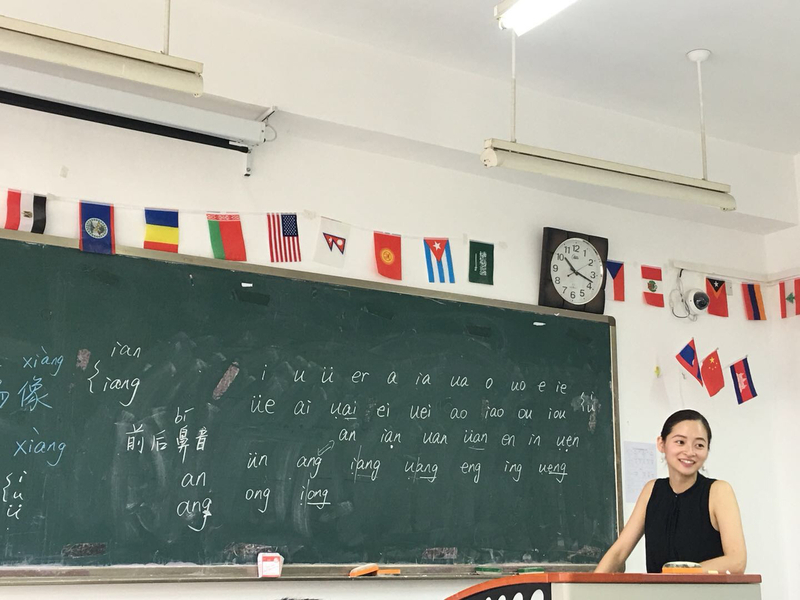 xiàng
像
xiàng
i
u
ü
ian
iang
bí
前后鼻音
an
ang
i u ü er a ia ua o uo e ie
üe ai uai ei uei ao iao ou iou
an ian uan üan en in uen
ün ang iang uang eng ing ueng
ong iong
12
1
2
3
4
5
6
7
8
9
10
11